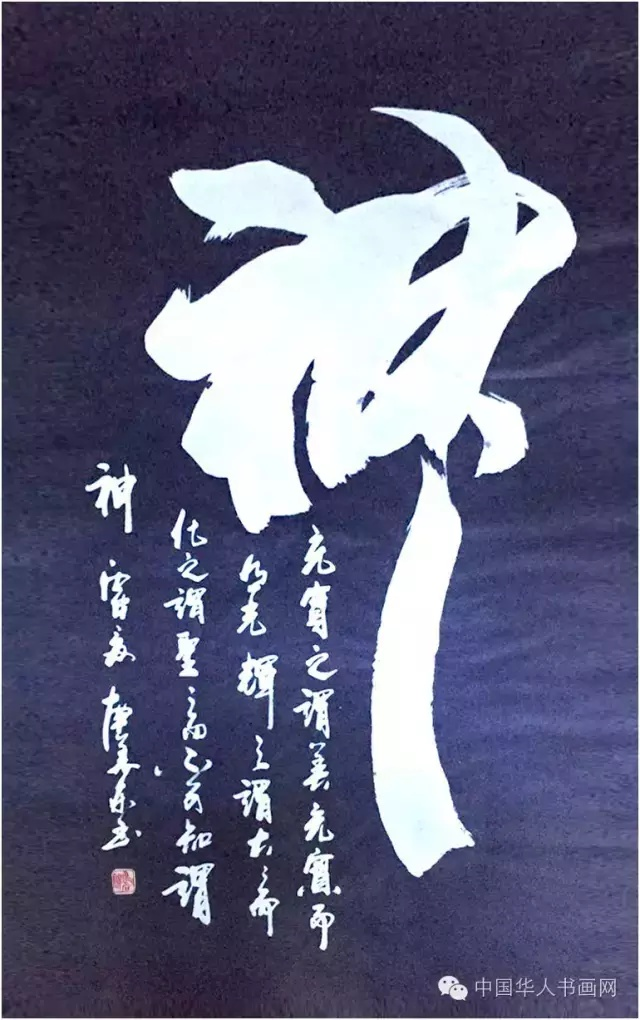 神
充實之謂美充實而
有光輝之謂大〻而
化之謂聖〻而不可知謂
神
中国华人书画网